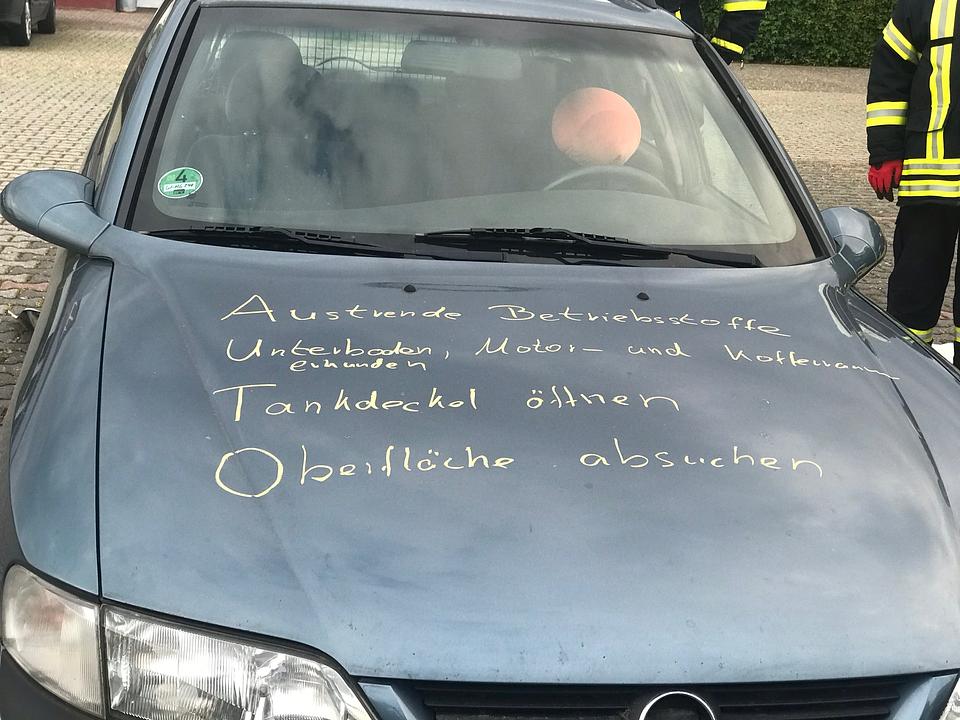 4
Austrende Betriebsstoffe
Unterboden, Motor- und Kofferraum
erkunden
Tankdeckel öffnen
Oberfläche absuchen